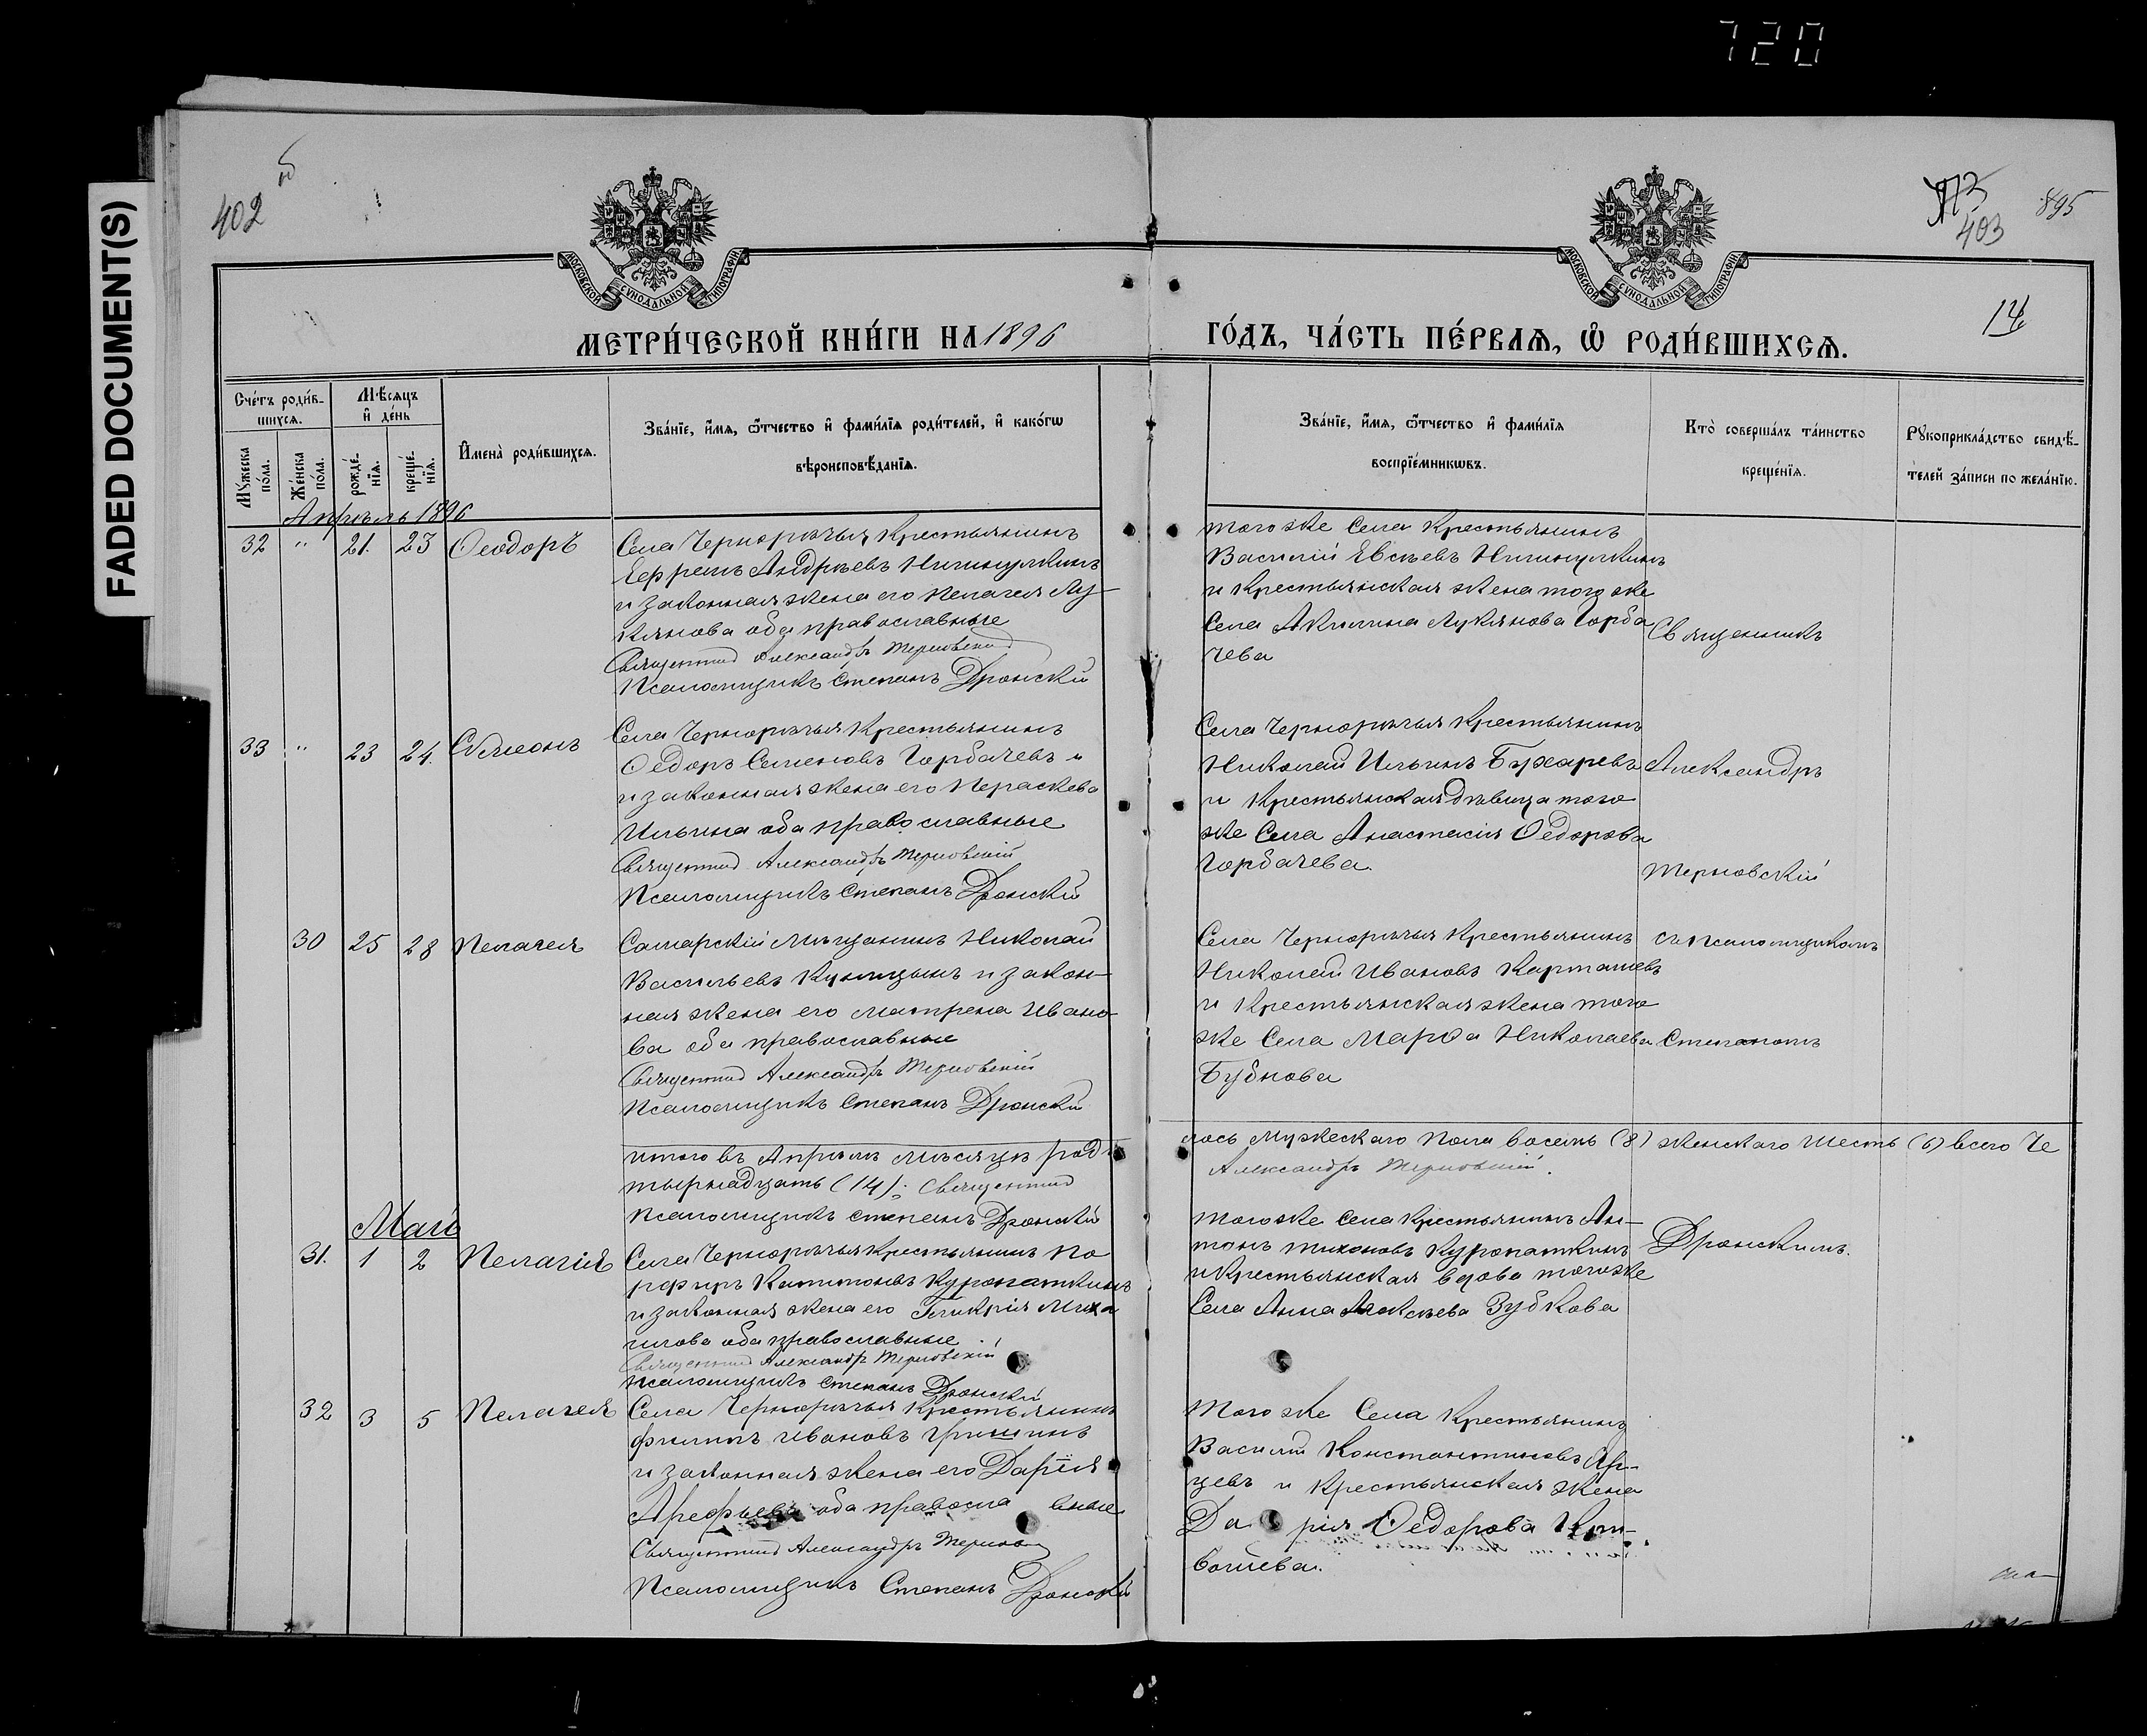 720
FADED DOCUMENT(S)
402 об
403
895
14
МОСКОВСКОЙ СѴНОДАЛЬНОЙ ТИПОГРАФІИ
МОСКОВСКОЙ СѴНОДАЛЬНОЙ ТИПОГРАФІИ
МЕТРИ́ЧЕСКОЙ КНИ́ГИ НА 1896
ГО́ДЪ, ЧА́СТЬ ПЕ́РВАѦ, Ѽ РОДИ́ВШИХСѦ.
Сче́тъ роди́в-
шихсѧ.
Мѣ́сѧцъ
и҆ де́нь
Мꙋ́жеска по́ла.
Же́нска по́ла.
рожде́-нїѧ.
креще́-нїѧ.
И҆мена̀ роди́вшихсѧ.
Зва́нїе, и҆́мѧ, ѻ҆́тчество и҆ фами́лїѧ роди́телей, и҆ како́гѡ
вѣроисповѣ́данїѧ.
Зва́нїе, и҆́мѧ, ѻ҆́тчество и҆ фами́лїѧ
воспрїе́мникѡвъ.
Кто̀ соверша́лъ та́инство
креще́нїѧ.
Рꙋкоприкла́дство свидѣ́-
телей за́писи по жела́нїю.
Апрѣль 1896
32 " 21. 23 Ѳеодоръ
Села Чернорѣчья Крестьянинъ
Ефремъ Андреевъ
и законная жена его Пелагея Лу-
кянова оба православные
Священник Александръ Терновский
Псаломщикъ Степанъ Дронский
Тогоже Села Крестьянинъ
Василий Евсѣевъ
и Крестьянская Жена того же
Села Акилина Лукянова Горба
чева
Священникъ
33 " 23 24. Симеонъ
Села Чернорѣчья Крестьянинъ
Ѳедоръ Семеновъ Горбачевъ и
и законная жена его Пераскева
Ильина оба православные
Священник Александръ Терновскій
Псаломщикъ Степанъ Дронский
Села Чернорѣчья Крестьянинъ
Николай Ильинъ Бухаревъ
и Крестьянская дѣвица того
же Села Анастасія Ѳедорова
Горбачева.
Александръ
Терновскій
30 25 28 Пелагея
Самарскій Мѣщанинъ Николай
Васильевъ Куницынъ и закон-
ная жена его Матрена Ивано-
ва оба православные
Священник Александръ Терновскій
Псаломщикъ Степанъ Дронский
Села Чернорѣчья Крестьянинъ
Николай Ивановъ Карташевъ
и Крестьянская жена того
же Села Марѳа Николаева
Бубнова
съ псаломщикомъ
Степаномъ
итого въ Апрѣле Мѣсяцѣ роди
лось Мужескаго Пола восемь (8) Женскаго Шесть (6) всего Че
тырнадцать (14). Священник
Александръ Терновский.
Псаломщикъ Степанъ Дронский
Май
31. 1 2 Пелагія
Села Чернорѣчья Крестьянинъ По
рфиръ Капитоновъ Куропаткинъ
и законная жена его Гликрія Миха
илова оба православные
Священник Александръ Терновскій
Псаломщикъ Степанъ Дронский
Тогоже Села Крестьянинъ Ан-
тонъ Тихоновъ Куропаткинъ
и Крестьянская вдова тогоже
Села Анна Алексѣева Зубкова
Дронскимъ.
32 3 5 Пелагея
Села Чернорѣчья Крестьянинъ
Филипъ Ивановъ Гришинъ
и законная жена его Дарія
Арефьева оба православные
Священник Александръ Терновск
Псаломщикъ Степанъ Дронский
Того же Села Крестьянинъ
Василий Константиновъ
цевъ и Крестьянская жена
Дарія Ѳедорова Кри-